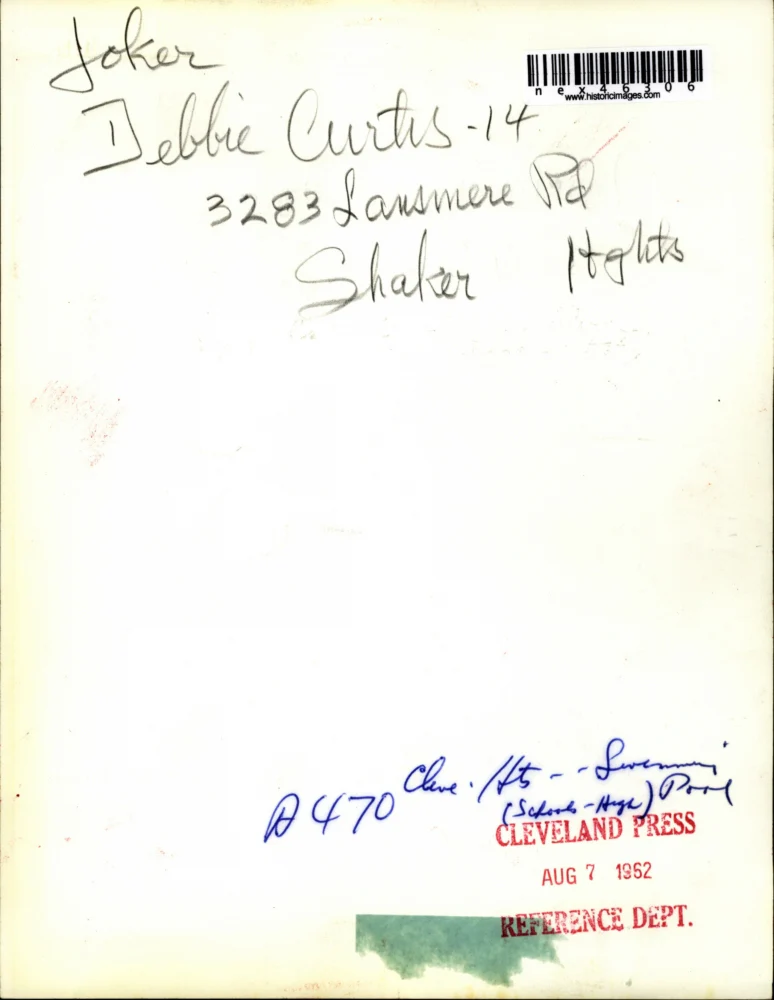 Joker
nex46306
www.historicimages.com
Debbie Curtis - 14
3283 Lansmere Rd
Shaker Hghts
A470 Cleve. Hts -- Swimming Pool
(Schools - High)
CLEVELAND PRESS
AUG 7 1962
REFERENCE DEPT.